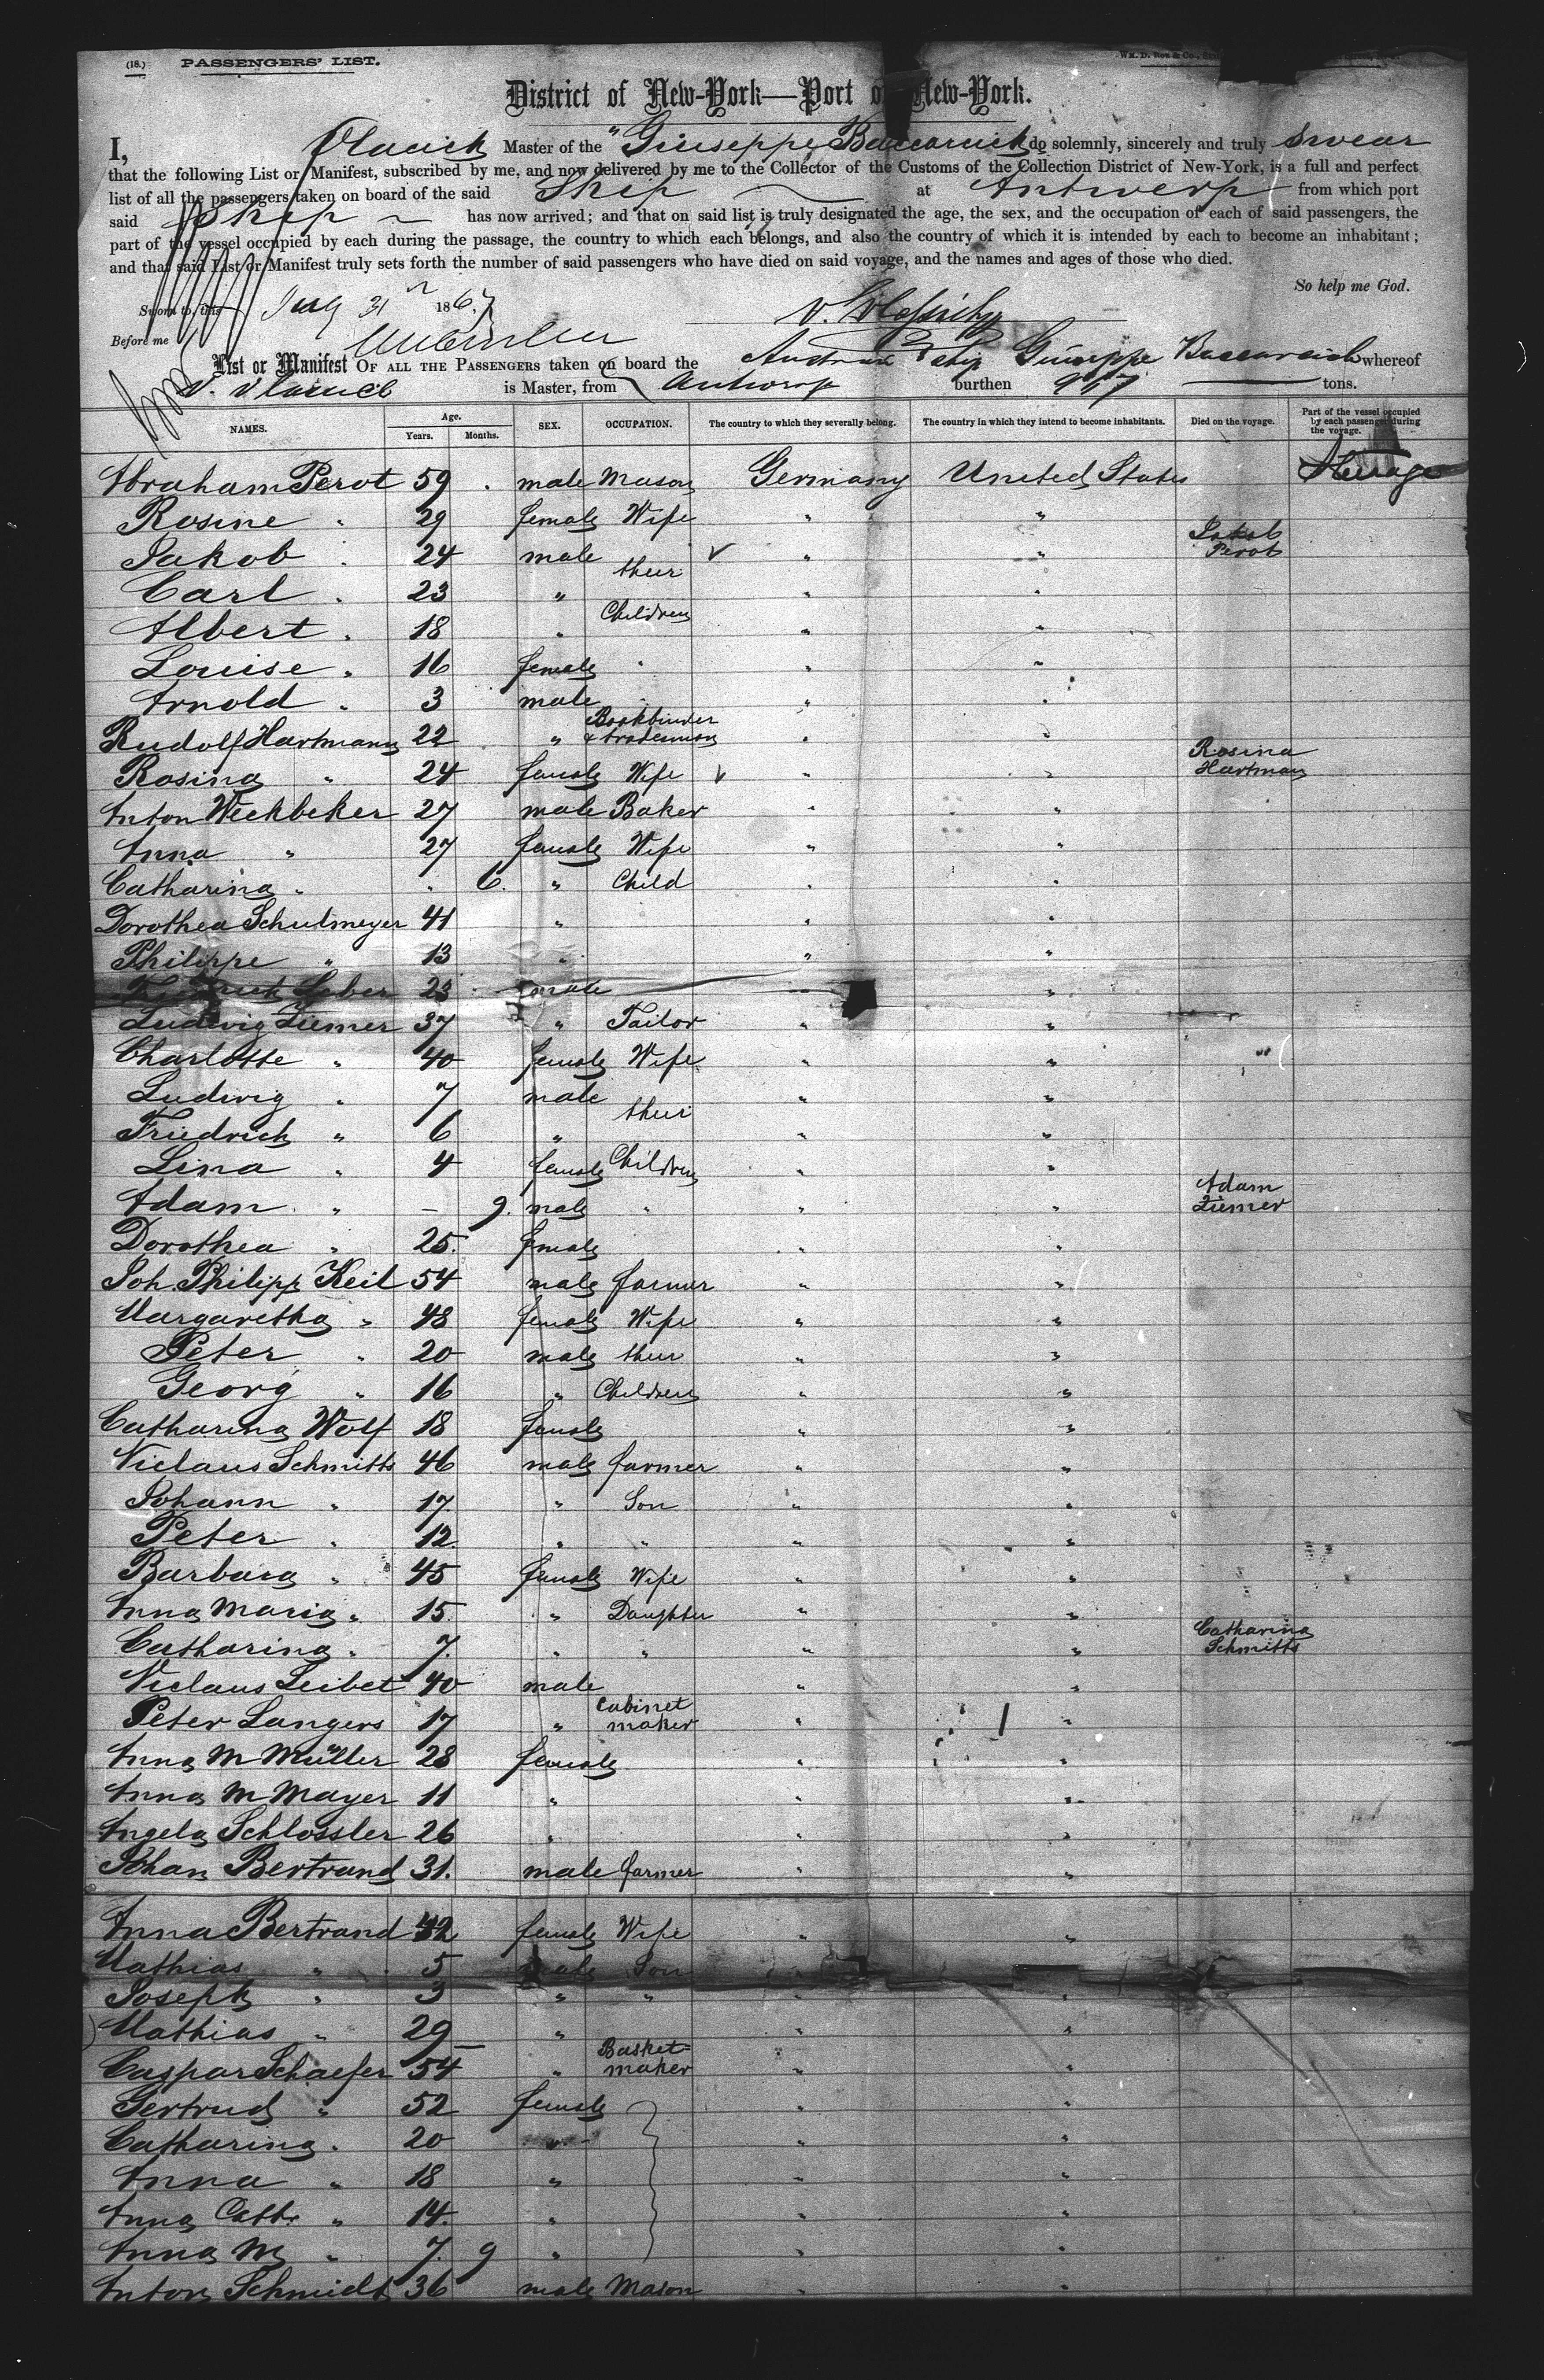 (18.) PASSENGERS' LIST.
WM. D. Roe & Co.,
District of New-York—Port of New-York.
I, Vlacich Master of the "Giuseppe Baccarcich do solemnly, sincerely and truly swear
that the following List or Manifest, subscribed by me, and now delivered by me to the Collector of the Customs of the Collection District of New-York, is a full and perfect
list of all the passengers taken on board of the said Ship at Antwerp from which port
said Ship has now arrived; and that on said list is truly designated the age, the sex, and the occupation of each of said passengers, the
part of the vessel occupied by each during the passage, the country to which each belongs, and also the country of which it is intended by each to become an inhabitant;
and that said List or Manifest truly sets forth the number of said passengers who have died on said voyage, and the names and ages of those who died.
So help me God.
Sworn to, this 31 1867
Before me
List or Manifest OF ALL THE PASSENGERS taken on board the Austrian Ship Giuseppe Baccarcich whereof
V. Vlacich is Master, from Antwerp burthen 967 tons.
NAMES. Age. Years. Months. SEX. OCCUPATION. The country to which they severally belong. The country in which they intend to become inhabitants. Died on the voyage. Part of the vessel occupied by each passenger during the voyage.
Abraham Perot 59 male Mason Germany United States Steerage
Rosine " 29 female Wife " "
Jakob " 24 male their " " Jakob Perot
Carl " 23 " Children " "
Albert " 18 " " "
Louise " 16 female " " "
Arnold " 3 male " " "
Rudolf Hartmann 22 " Bookbinder & tradesman " "
Rosina " 24 female Wife " " Rosina Hartman
Anton Weckbeker 27 male Baker " "
Anna " 27 female Wife " "
Catharina " " 6. " Child " "
Dorothea Schulmeyer 41 " " "
Philippe " 13 " " "
Friedrich Leber 23 male " "
Ludwig Ziemer 37 " Tailor " "
Charlotte " 40 female Wife " "
Ludwig " 7 male their " "
Friedrich " 6 " " "
Lina " 4 female Children " "
Adam " – 9. male " " " Adam Ziemer
Dorothea " 25. female " "
Joh. Philipp Keil 54 male farmer " "
Margaretha " 48 female Wife " "
Peter " 20 male their " "
Georg " 16 " Children " "
Catharina Wolf 18 female " "
Niclaus Schmitts 46 male farmer " "
Johann " 17. " Son " "
Peter " 12 " " " "
Barbara " 45 female Wife " "
Anna Maria " 15. " Daughter " "
Catharina " 7. " " " " Catharina Schmitts
Niclaus Leibet 40 male " "
Peter Langers 17 " Cabinet maker " "
Anna M Müller 28 female " "
Anna M Mayer 11 " " "
Angela Schlossler 26 " " "
Johan Bertrand 31. male farmer " "
Anna Bertrand 42 female Wife " "
Mathias " 5 male Son " "
Joseph " 3 " " " "
Mathias " 29 " " "
Caspar Schaefer 54 " Basket-maker " "
Gertrud " 52 female " "
Catharina " 20 " " "
Anna " 18 " " "
Anna Cath. " 14. " " "
Anna M " 7. 9 " " "
Anton Schmidt 36 male Mason " "